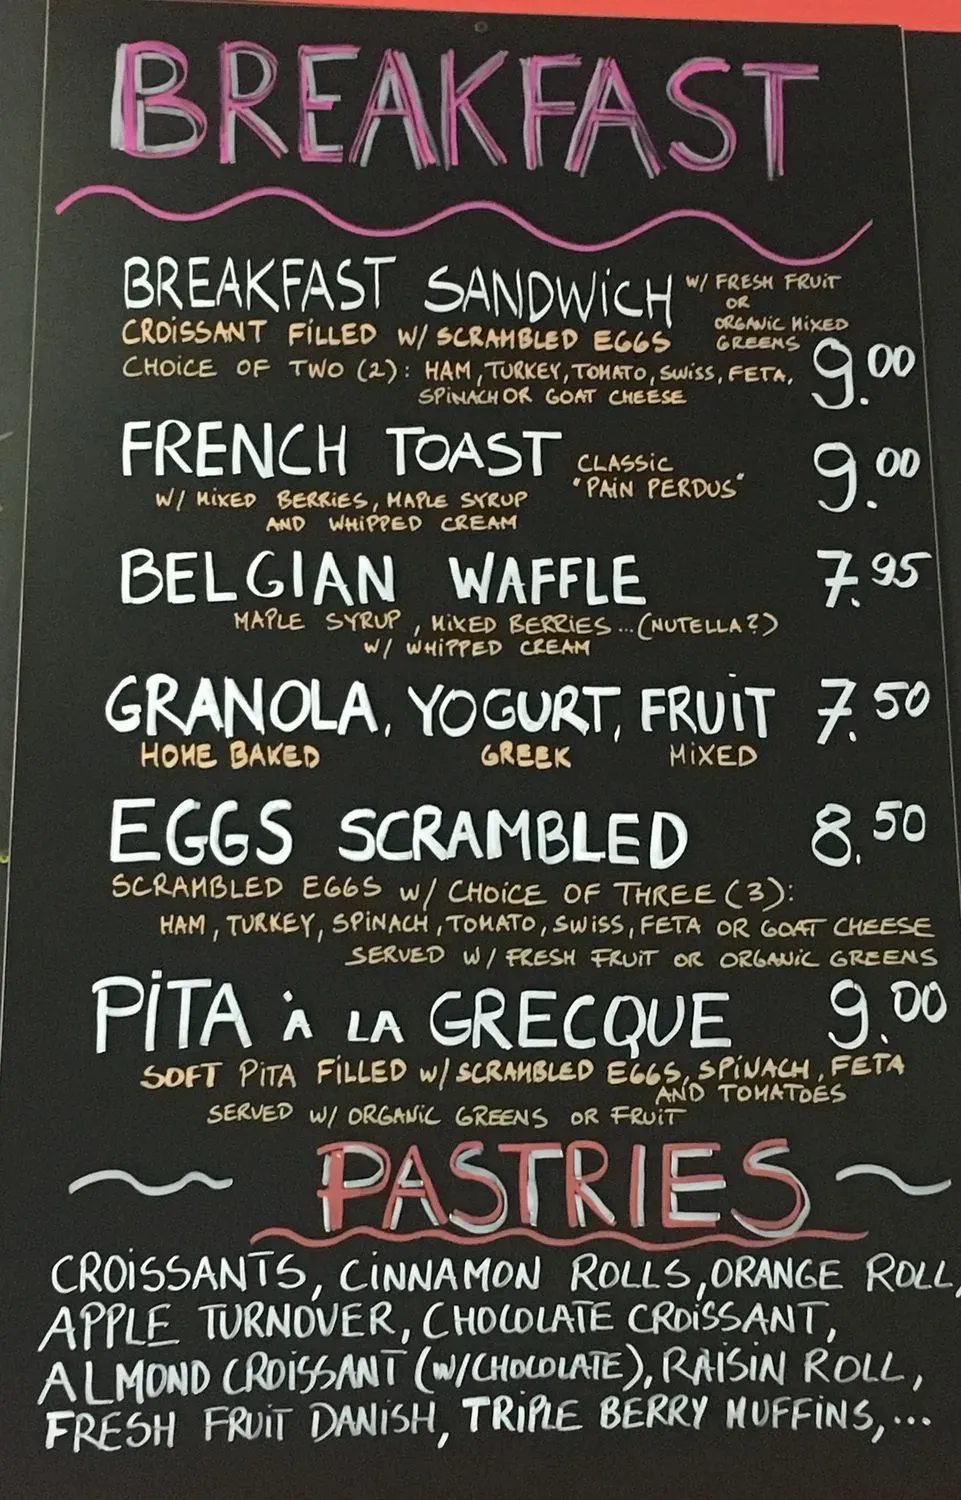 BREAKFAST
BREAKFAST SANDWiCH w/ FRESH FRUiT
OR
ORGANiC MiXED
GREENS
CROiSSANT FiLLED w/ SCRAMBLED EGGS
9.00
CHOiCE OF TWO (2): HAM, TURKEY, TOMATO, SWiSS, FETA,
SPiNACH OR GOAT CHEESE
FRENCH TOAST CLASSiC
"PAiN PERDUS"
9.00
W/ MiXED BERRiES, MAPLE SYRUP
AND WHiPPED CREAM
BELGIAN WAFFLE 7.95
MAPLE SYRUP, MiXED BERRiES...(NUTELLA?)
W/ WHiPPED CREAM
GRANOLA, YOGURT, FRUiT 7.50
HOME BAKED GREEK MiXED
EGGS SCRAMBLED 8.50
SCRAMBLED EGGS w/ CHOiCE OF THREE (3):
HAM, TURKEY, SPiNACH, TOMATO, SWiSS, FETA OR GOAT CHEESE
SERVED W/ FRESH FRUiT OR ORGANiC GREENS
PiTA à LA GRECQUE 9.00
SOFT PiTA FiLLED w/ SCRAMBLED EGGS, SPiNACH, FETA
AND TOMATOES
SERVED W/ ORGANiC GREENS OR FRUiT
PASTRIES
CROiSSANTS, CiNNAMON ROLLS, ORANGE ROLL,
APPLE TURNOVER, CHOCOLATE CROiSSANT,
ALMOND CROiSSANT (W/CHOCOLATE), RAiSiN ROLL,
FRESH FRUiT DANiSH, TRiPLE BERRY MUFFiNS,...